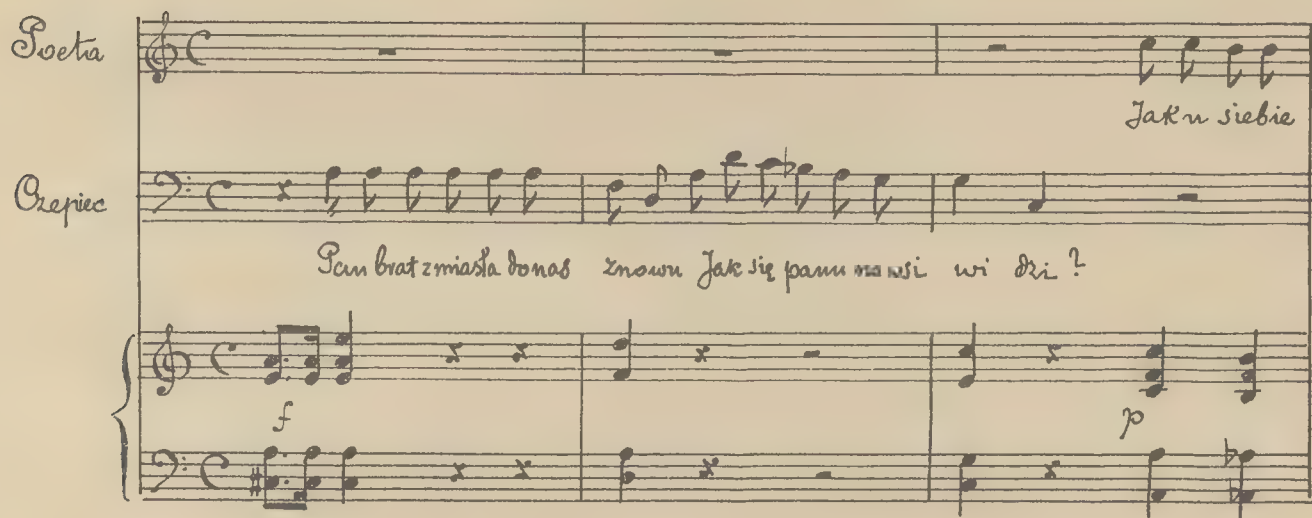 Poeta
Jak u siebie
Czepiec
Pan brat z miasta do nas znowu Jak się panu na wsi wi dzi?
f
p